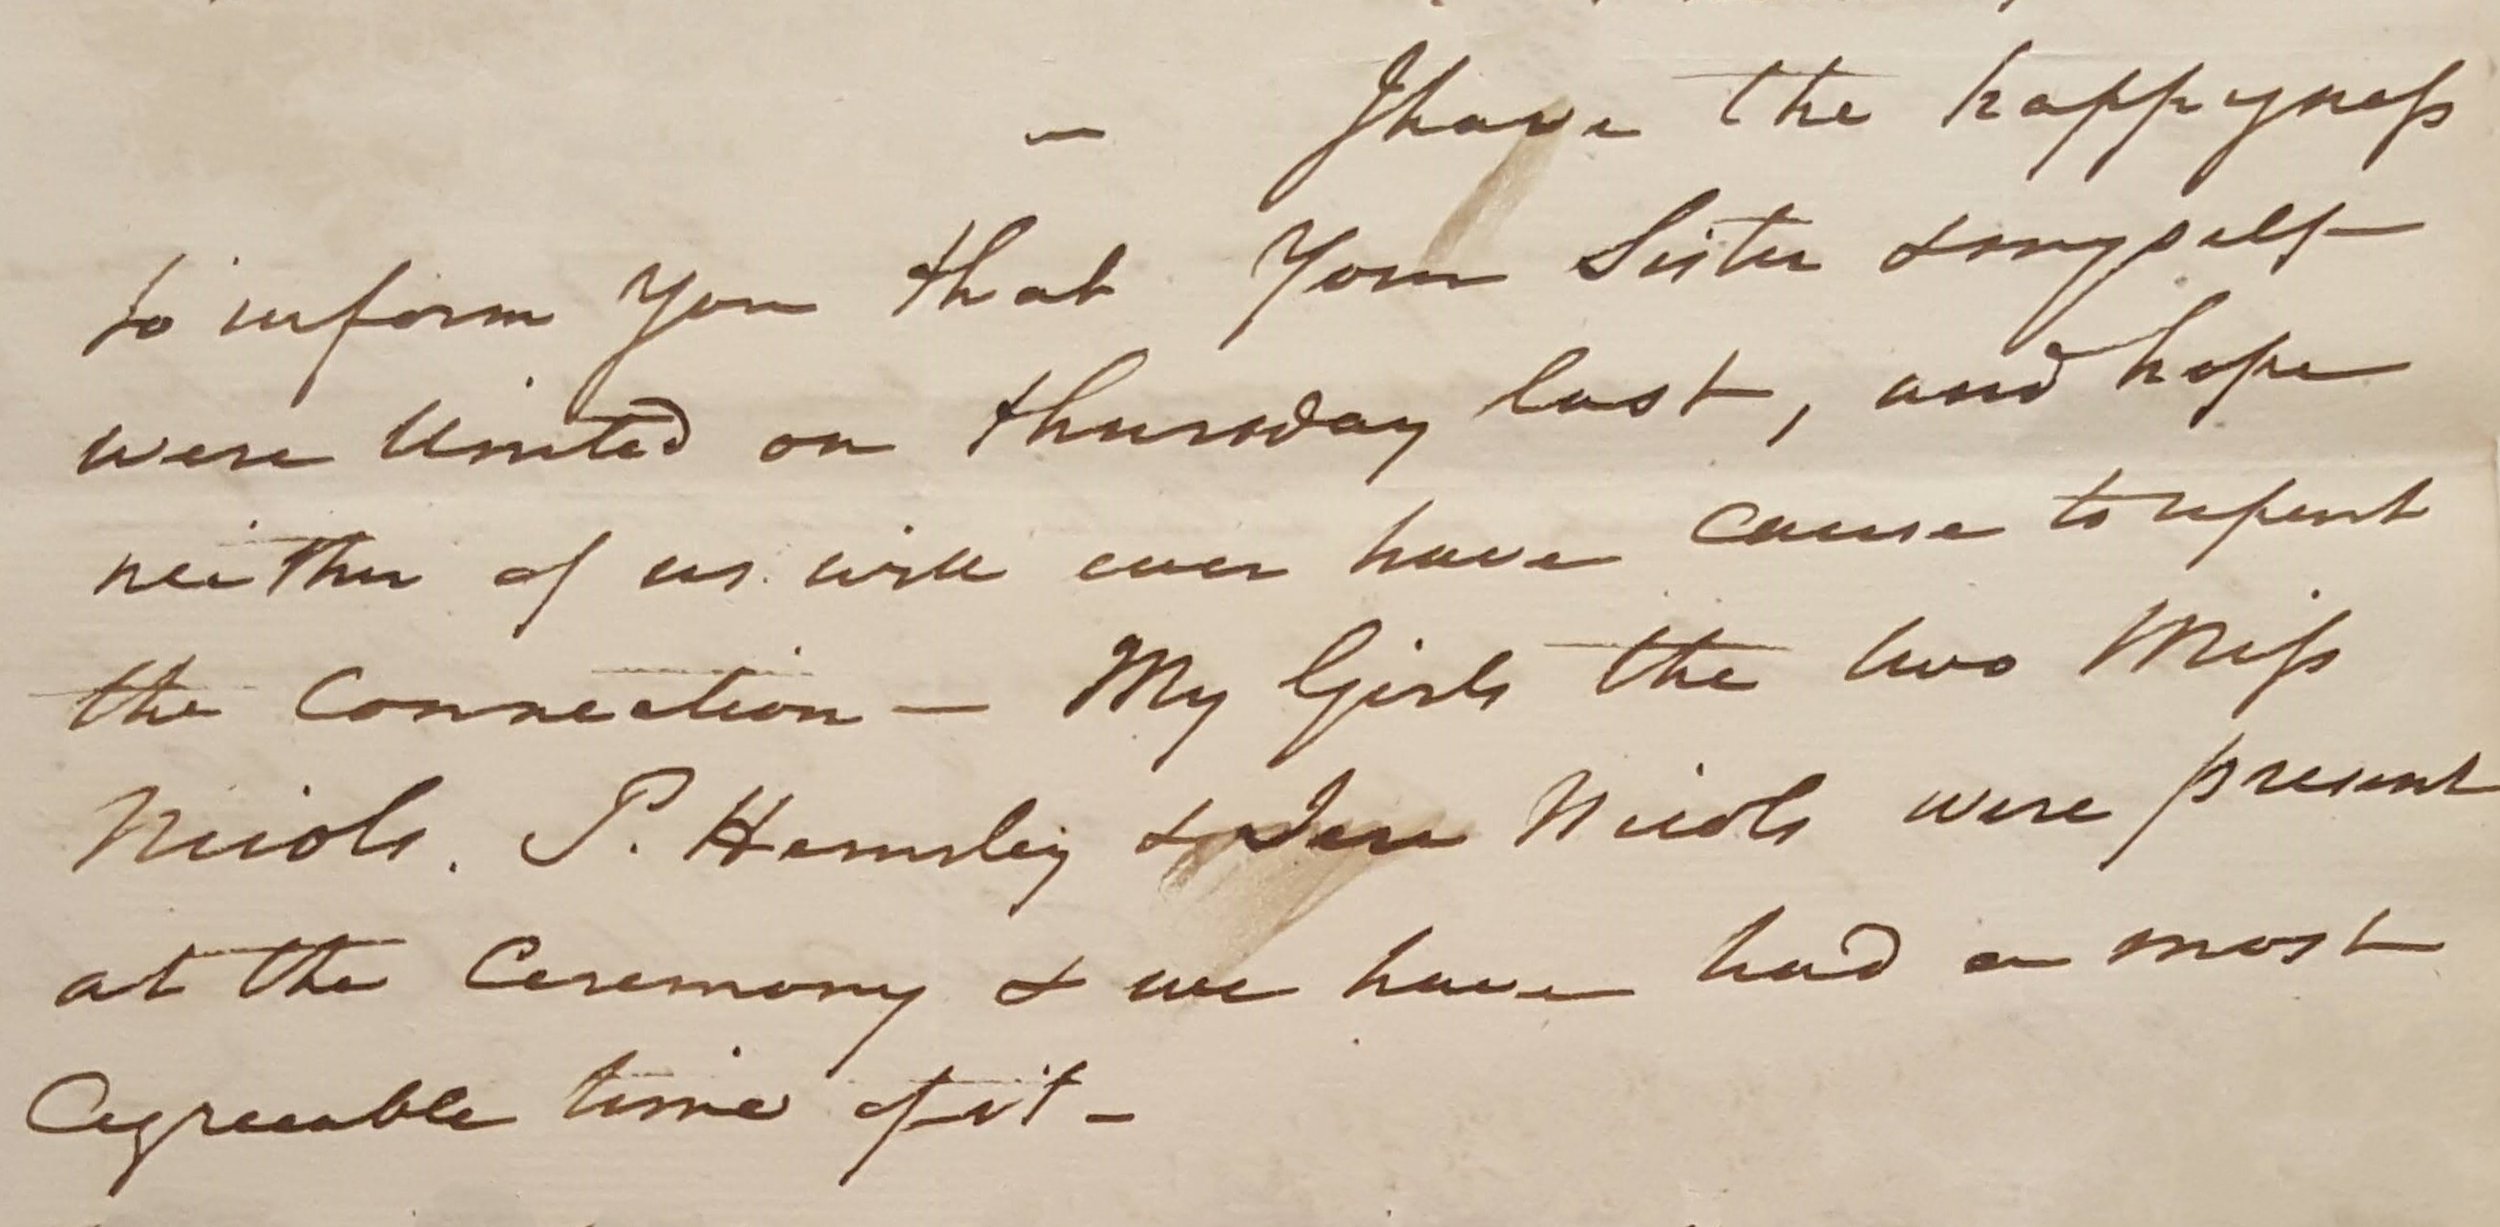 – I have the happyness
to inform You that Your Sister & myself
were United on thursday last, and hope
neither of us will ever have cause to repent
the Connection – My Girls the two Miss
Nicols. P. Hemsley & Jere Nicols were present
at the Ceremony & we have had a most
Agreeable time of it –